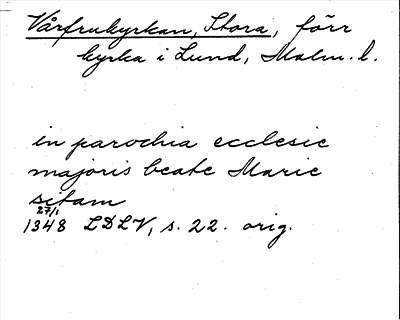 Vårfrukyrkan, Stora, förr
kyrka i Lund, Malm. l.
in parochia ecclesie
majoris beate Marie
sitam
27/1
1348 LDLV, s. 22. orig.